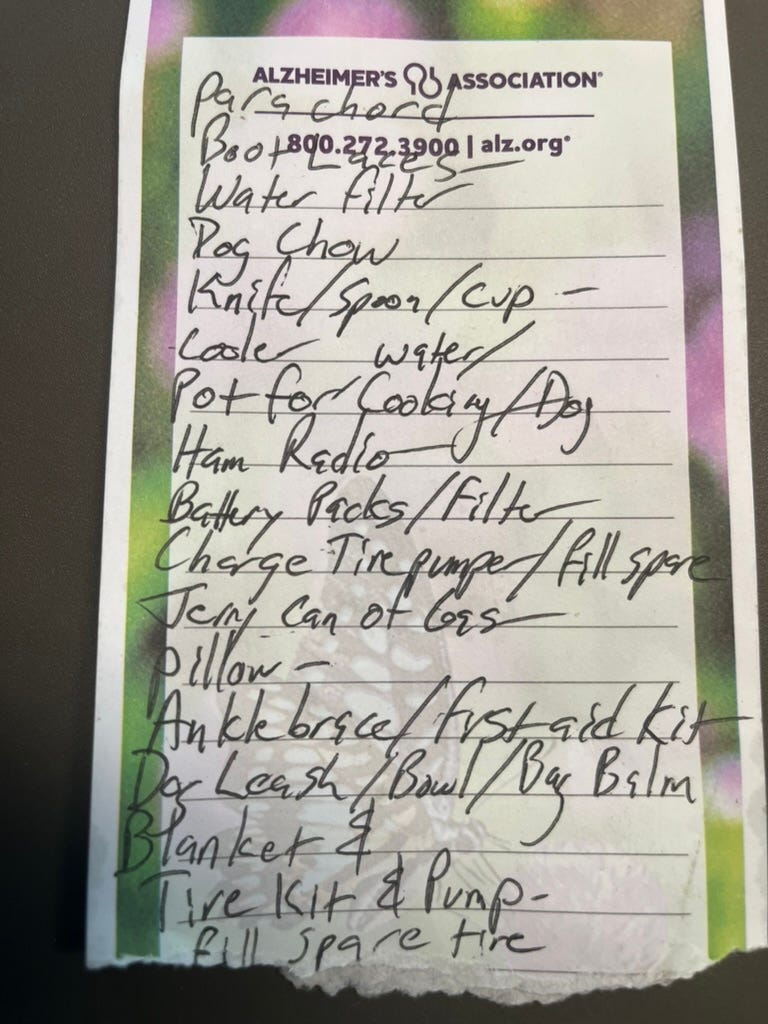 ALZHEIMER'S ASSOCIATION®
Parachord
800.272.3900 | alz.org®
Boot Laces -
Water filter
Dog Chow
Knife/Spoon/Cup -
Cooler water/
Pot for Cooking/Dog
Ham Radio
Battery Packs/Filter
Charge Tire pumper/fill spare
Jerry Can of Gas
pillow -
Ankle brace/first aid kit
Dog Leash/Bowl/Bag Balm
Blanket &
Tire Kit & Pump -
fill spare tire